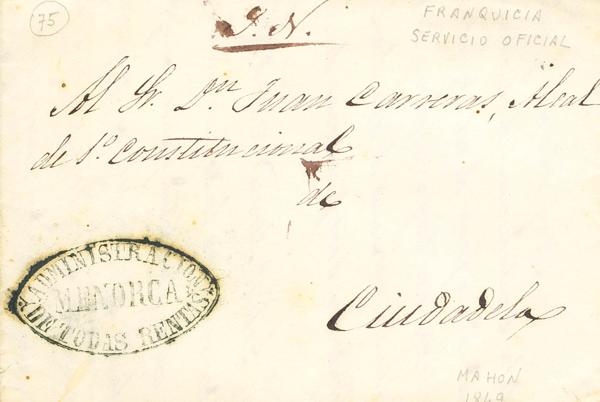 75
S. N.
FRANQUICIA
SERVICIO OFICIAL
Al Sr. Dn Juan Carreras, Alcal
de 1º Constitucional
de
Ciudadela
ADMINISTRACION
MENORCA
DE TODAS RENTAS
MAHON
1849